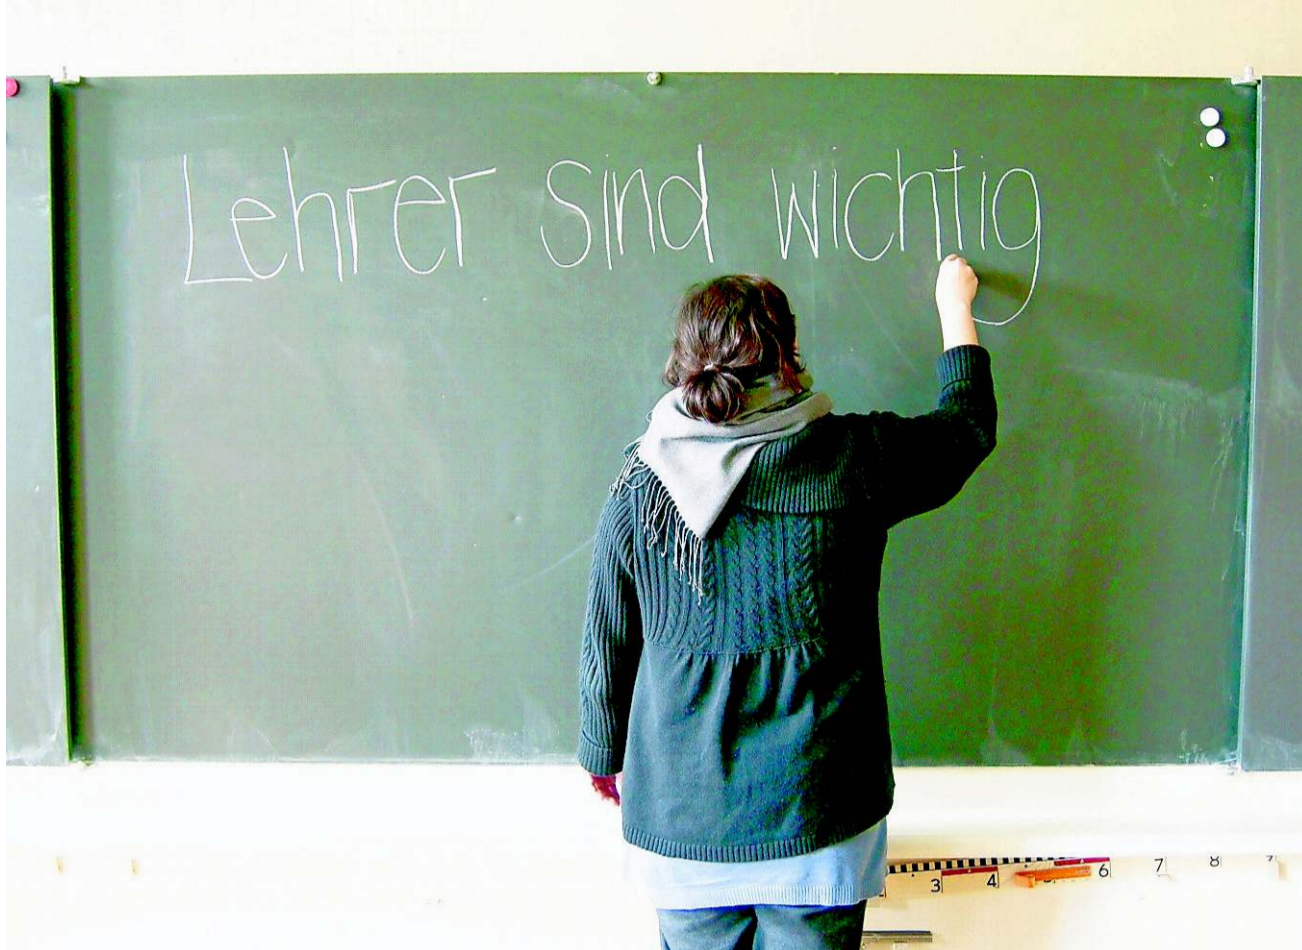 Lehrer sind wichtig
3 4 6 7 8